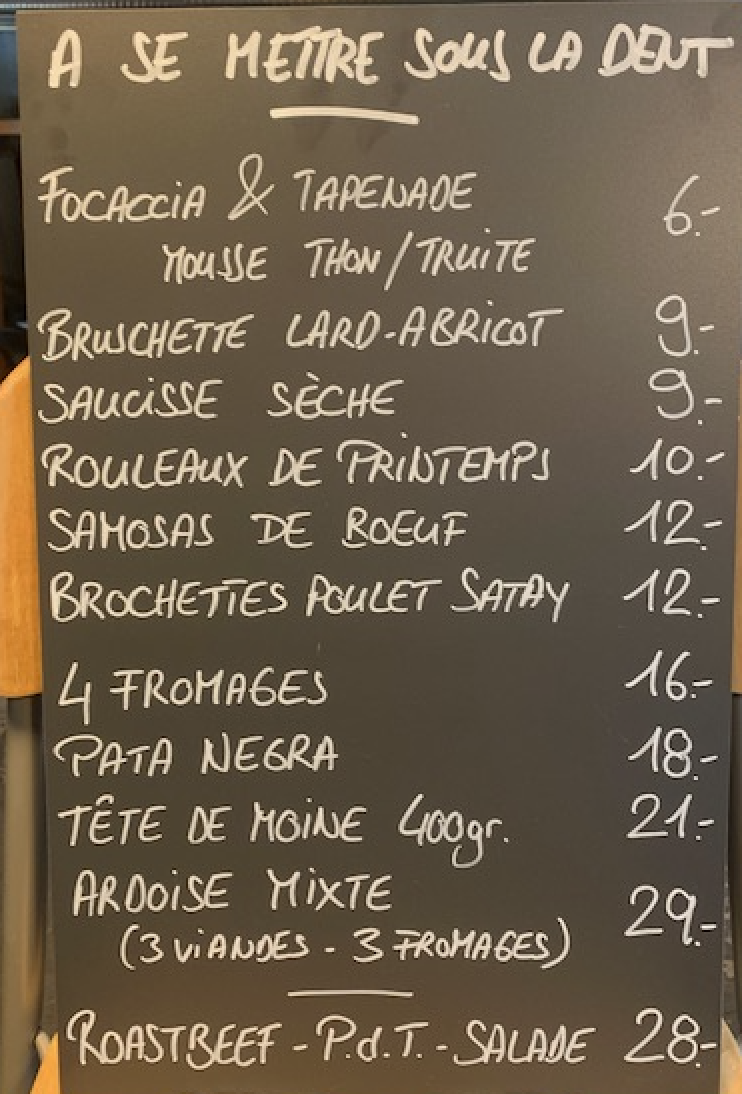 A SE METTRE SOUS LA DENT
FOCACCIA & TAPENADE 6.-
MOUSSE THON/TRUITE
BRUSCHETTE LARD-ABRICOT 9.-
SAUCISSE SÈCHE 9.-
ROULEAUX DE PRINTEMPS 10.-
SAMOSAS DE BOEUF 12.-
BROCHETTES POULET SATAY 12.-
4 FROMAGES 16.-
PATA NEGRA 18.-
TÊTE DE MOINE 400gr. 21.-
ARDOISE MIXTE 29.-
(3 VIANDES - 3 FROMAGES)
ROASTBEEF - P.d.T. - SALADE 28.-